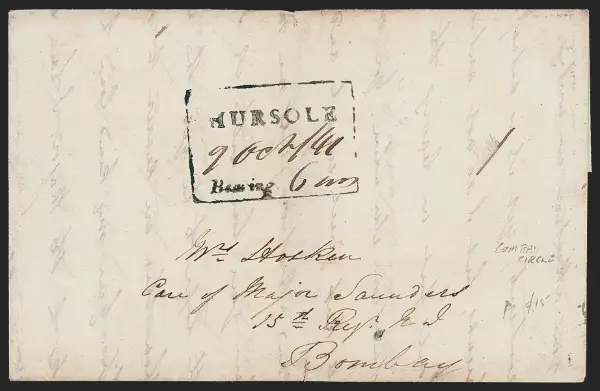 HURSOLE
9 Oct/41
Bearing 6 ans
Mrs Hosken
Care of Major Saunders
15th Regt N I
Bombay
CIRCLE
P $15